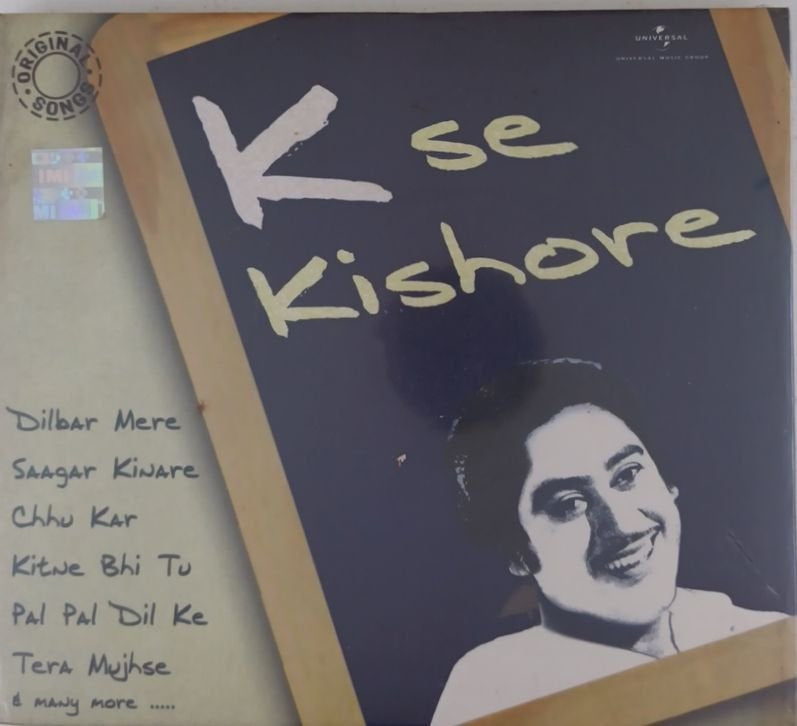 ORIGINAL
SONGS
UNIVERSAL
UNIVERSAL MUSIC GROUP
K se
Kishore
IMI
MI
Dilbar Mere
Saagar Kinare
Chhu Kar
Kitne Bhi Tu
Pal Pal Dil Ke
Tera Mujhse
& many more .....